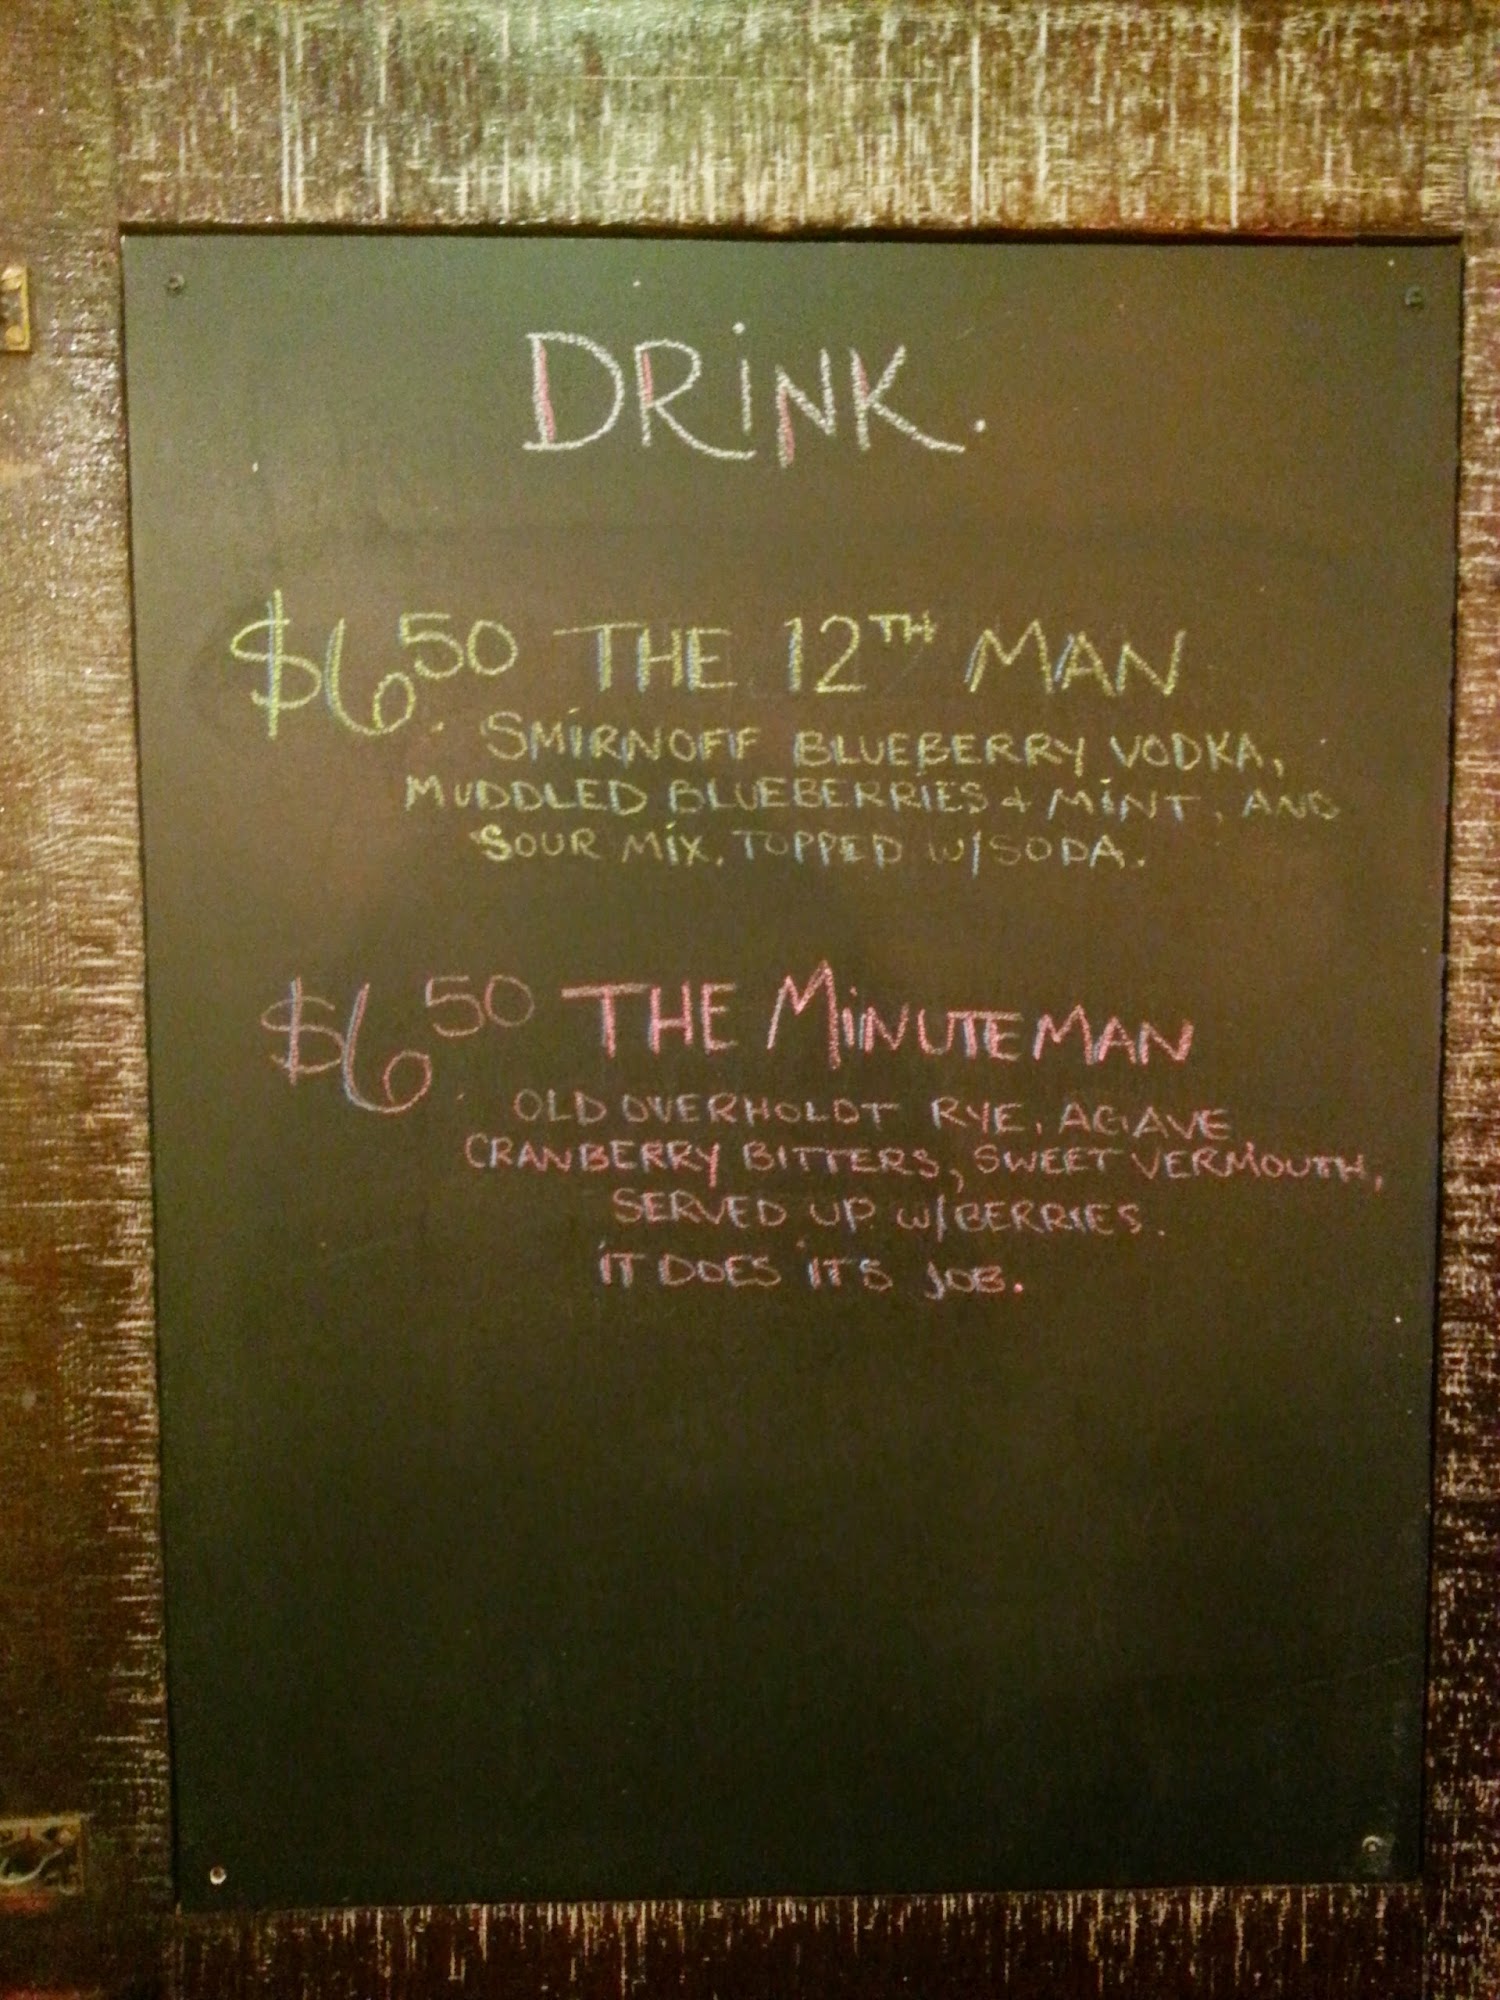 DRiNK.
$6.50 THE 12TH MAN
SMiRNOFF BLUEBERRY VODKA,
MUDDLED BLUEBERRiES & MiNT, AND
SOUR MiX, TOPPED W/SODA.
$6.50 THE MiNUTEMAN
OLD OVERHOLDT RYE, AGAVE,
CRANBERRY BITTERS, SWEET VERMOUTH,
SERVED UP W/BERRIES.
iT DOES iTS JOB.